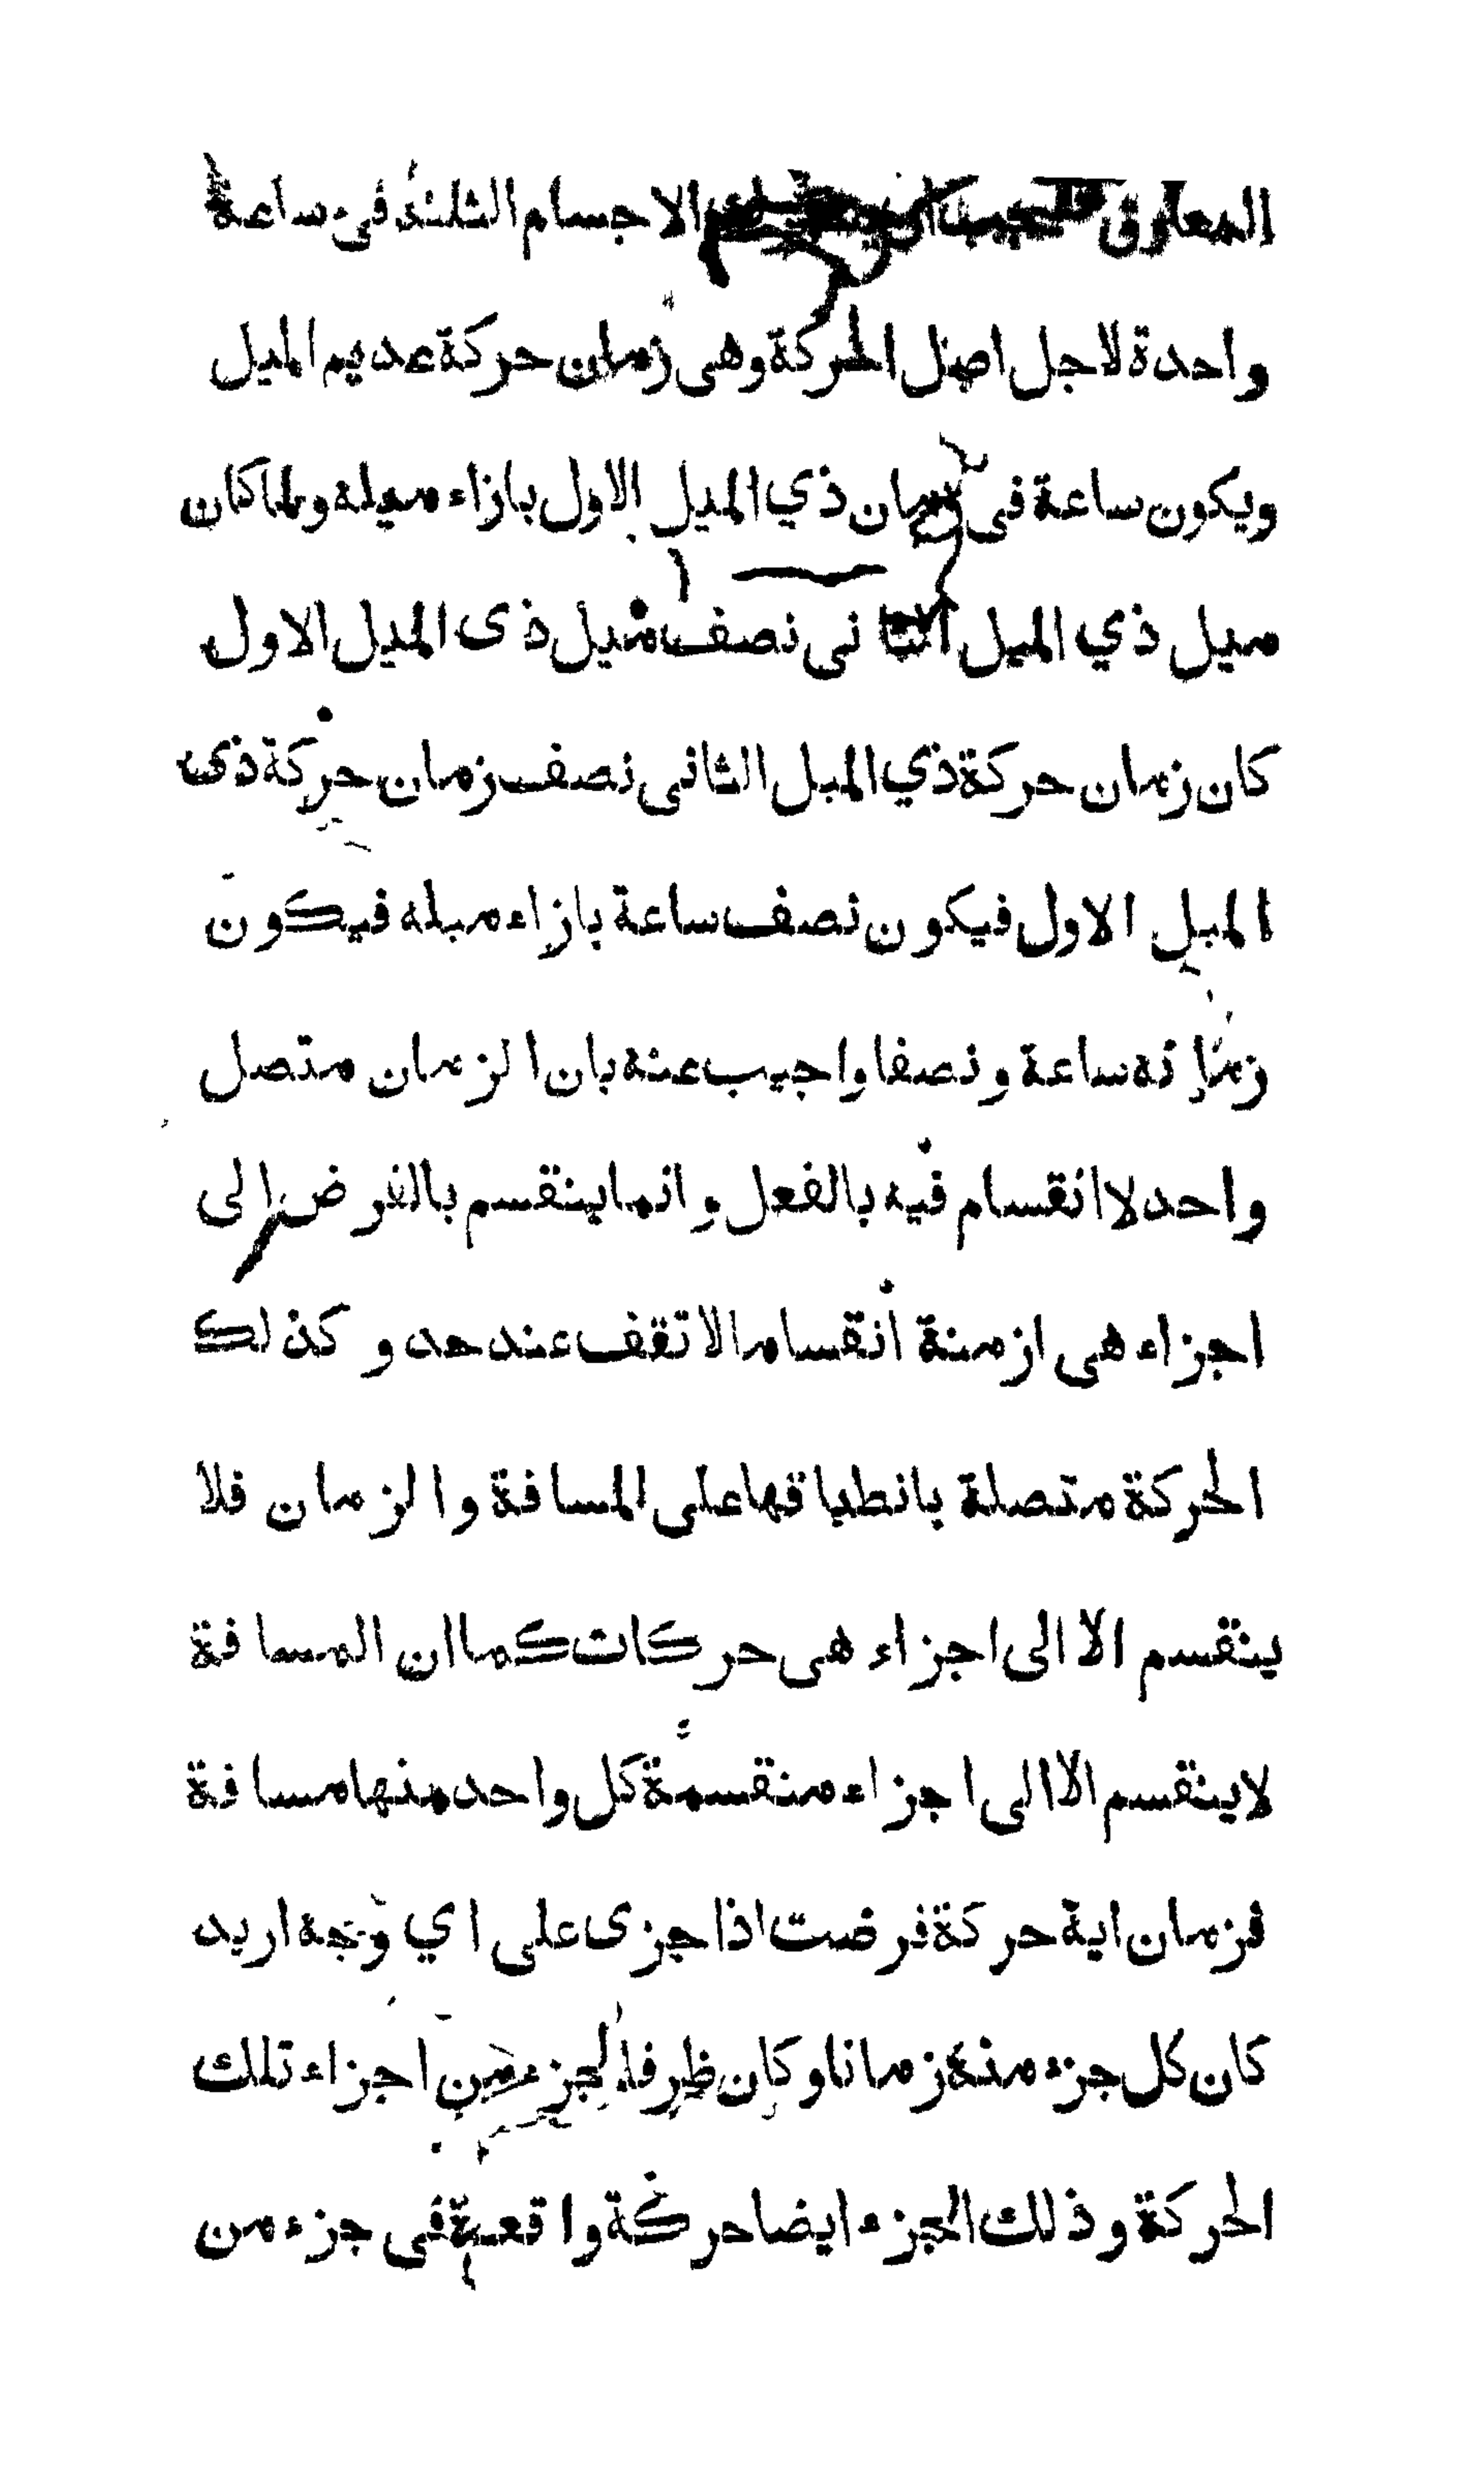 المعاوق فيجب الاجسام الثلثة في ساعة
واحدة لاجل اصل الحركة وهى زمان حركة عديم الميل
ويكون ساعة فى زمان ذي الميل الاول بازاء ميله ولما كان
ميل ذي الميل الثانى نصف ميل ذى الميل الاول
كان زمان حركة ذي الميل الثانى نصف زمان حركة ذى
الميل الاول فيكون نصف ساعة بازاء ميله فيكون
زمانه ساعة ونصفا واجيب عنه بان الزمان متصل
واحد لا انقسام فيه بالفعل وانما ينقسم بالفرض الى
اجزاء هى ازمنة انقساما لا تقف عند حد وكذلك
الحركة متصلة بانطباقها على المسافة والزمان فلا
ينقسم الا الى اجزاء هى حركات كما ان المسافة
لا ينقسم الا الى اجزاء منقسمة كل واحد منها مسافة
فزمان اية حركة فرضت اذا جزى على اي وجه اريد
كان كل جزء منه زمانا وكان ظرفا لجزء من اجزاء تلك
الحركة وذلك الجزء ايضا حركة واقعة فى جزء من